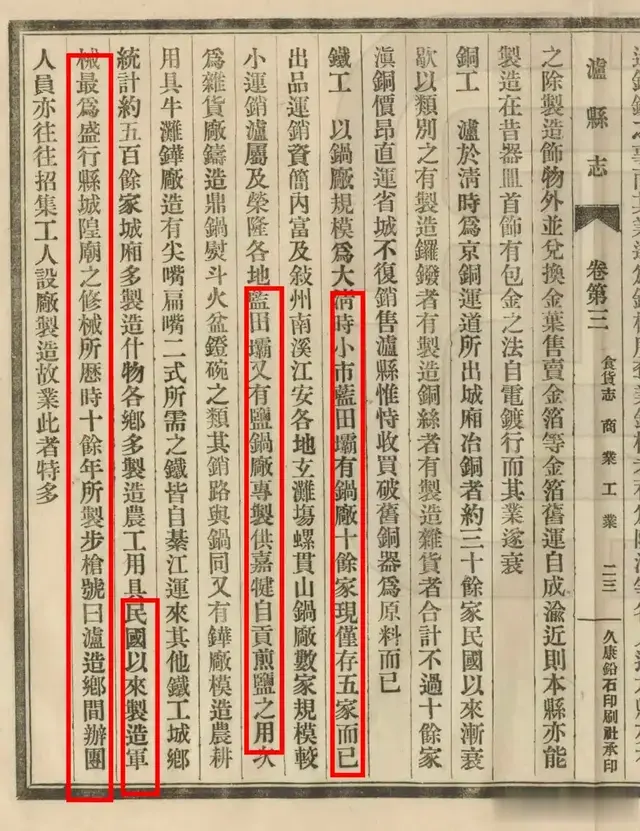 瀘縣志 卷第三 食貨志 商業 工業 二三 久康鉛石印刷社承印
之除製造飾物外並兌換金葉售賣金箔等金箔舊運自成渝近則本縣亦能
製造在昔器皿首飾有包金之法自電鍍行而其業遂衰
銅工 瀘於淸時爲京銅運道所出城廂冶銅者約三十餘家民國以來漸衰
歇以類別之有製造鑼鈸者有製造銅絲者有製造雜貨者合計不過十餘家
滇銅價昂直運省城不復銷售瀘縣惟恃收買破舊銅器爲原料而已
鐵工 以鍋廠規模爲大淸時小市藍田壩有鍋廠十餘家現僅存五家而已
出品運銷資簡內富及敍州南溪江安各地玄灘塲螺貫山鍋廠數家規模較
小運銷瀘屬及榮隆各地藍田壩又有鹽鍋廠專製供嘉犍自貢煎鹽之用次
爲雜貨廠鑄造鼎鍋熨斗火盆鐙碗之類其銷路與鍋同又有鏵廠模造農耕
用具牛灘鏵廠造有尖嘴扁嘴二式所需之鐵皆自綦江運來其他鐵工城鄉
統計約五百餘家城廂多製造什物各鄉多製造農工用具民國以來製造軍
械最爲盛行縣城隍廟之修械所歷時十餘年所製步槍號曰瀘造鄉間辦團
人員亦往往招集工人設廠製造故業此者特多